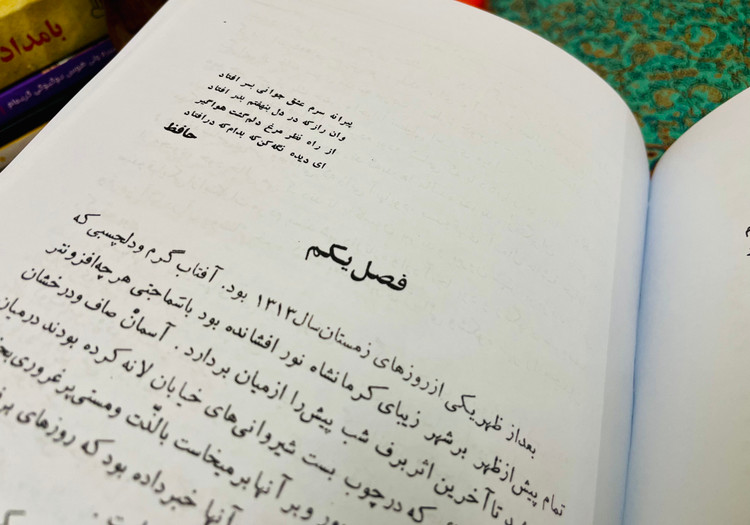 بامداد
پیرانه سرم عشق جوانی بسر افتاد
وان راز که در دل بنهفتم بدر افتاد
از راه نظر مرغ دلم گشت هواگیر
ای دیده نگه کن که بدام که درافتاد
حافظ
فصل یکم
بعد از ظهر یکی از روزهای زمستان سال ۱۳۱۳ بود. آفتاب گرم و دلچسبی که
تمام پیش از ظهر بر شهر زیبای کرمانشاه نور افشانده بود با سماجتی هر چه افزونتر
تا آخرین اثر برف شب پیش را از میان بردارد. آسمان صاف و درخشان
که در چوب بست شیروانی‌های خیابان لانه کرده بودند در میان
و بر آنها بر میخاست با لذت و مستی پر غروری
آنها خبر داده بود که روزهای